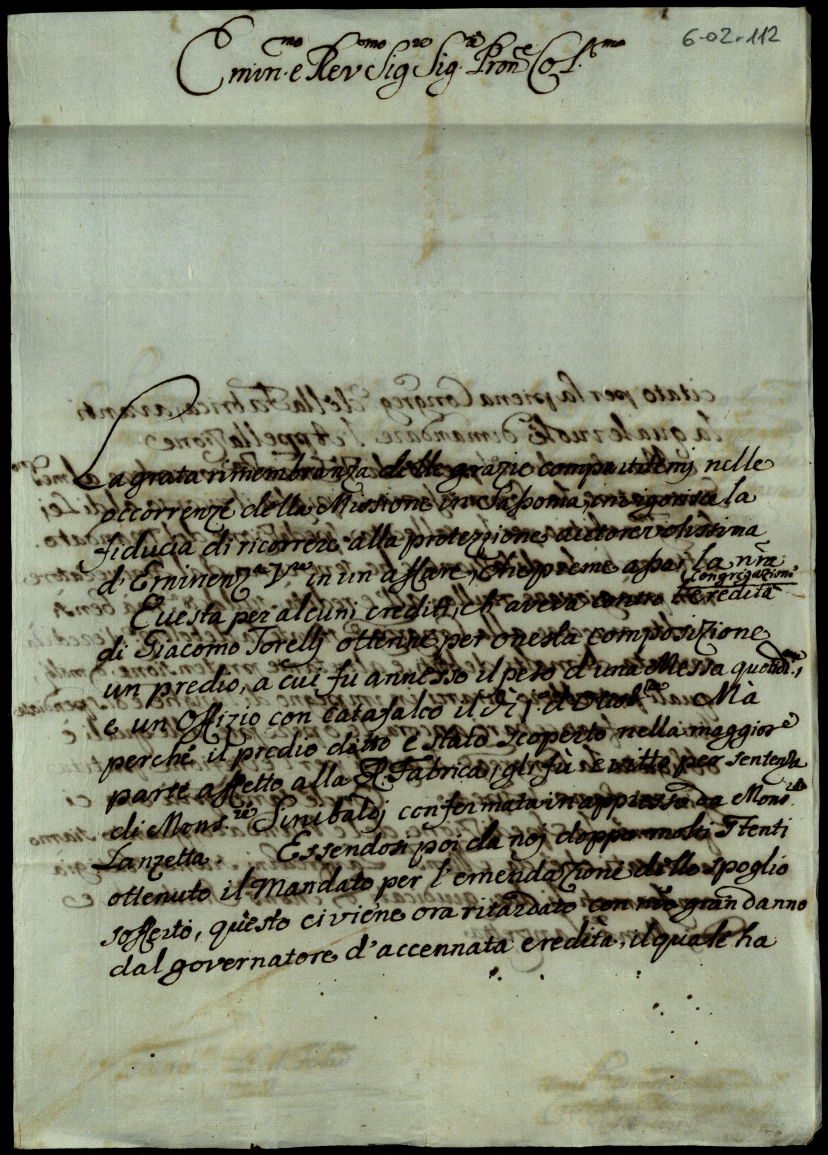 6-02-112
Emin.mo e Rev.mo Sig.re Sig.r Pron.e Col.mo
La grata rimembranza delle grazie compartitemj nelle
occorrenze della Missione in Sapponia, invigorisce la
fiducia di ricorrere alla protezzione autorevolissima
d'Eminenz.a V.ra in un affare, che preme assai la nr̃a
Congregazione
Questa per alcuni crediti, ch'aveva contro l'eredità
di Giacomo Torellj ottenne per onesta composizione
un predio, a cui fù annesso il peso d'una Messa quotid.na,
e un Offizio con catafalco il dì p.o d'Ottob.re Mà
perche il predio detto è stato scoperto nella maggior
parte affetto alla R. Fabrica, gli fù evitto per sentenza
di Mons.re Sinibaldj confermata in appresso da Mons.re
Lanzetta. Essendosi poi da noj doppo molti stenti
ottenuto il Mandato per l'emendazione dello spoglio
sofferto, questo ci viene ora ritardato con nr̃o gran danno
dal governatore d'accennata eredità, il quale ha